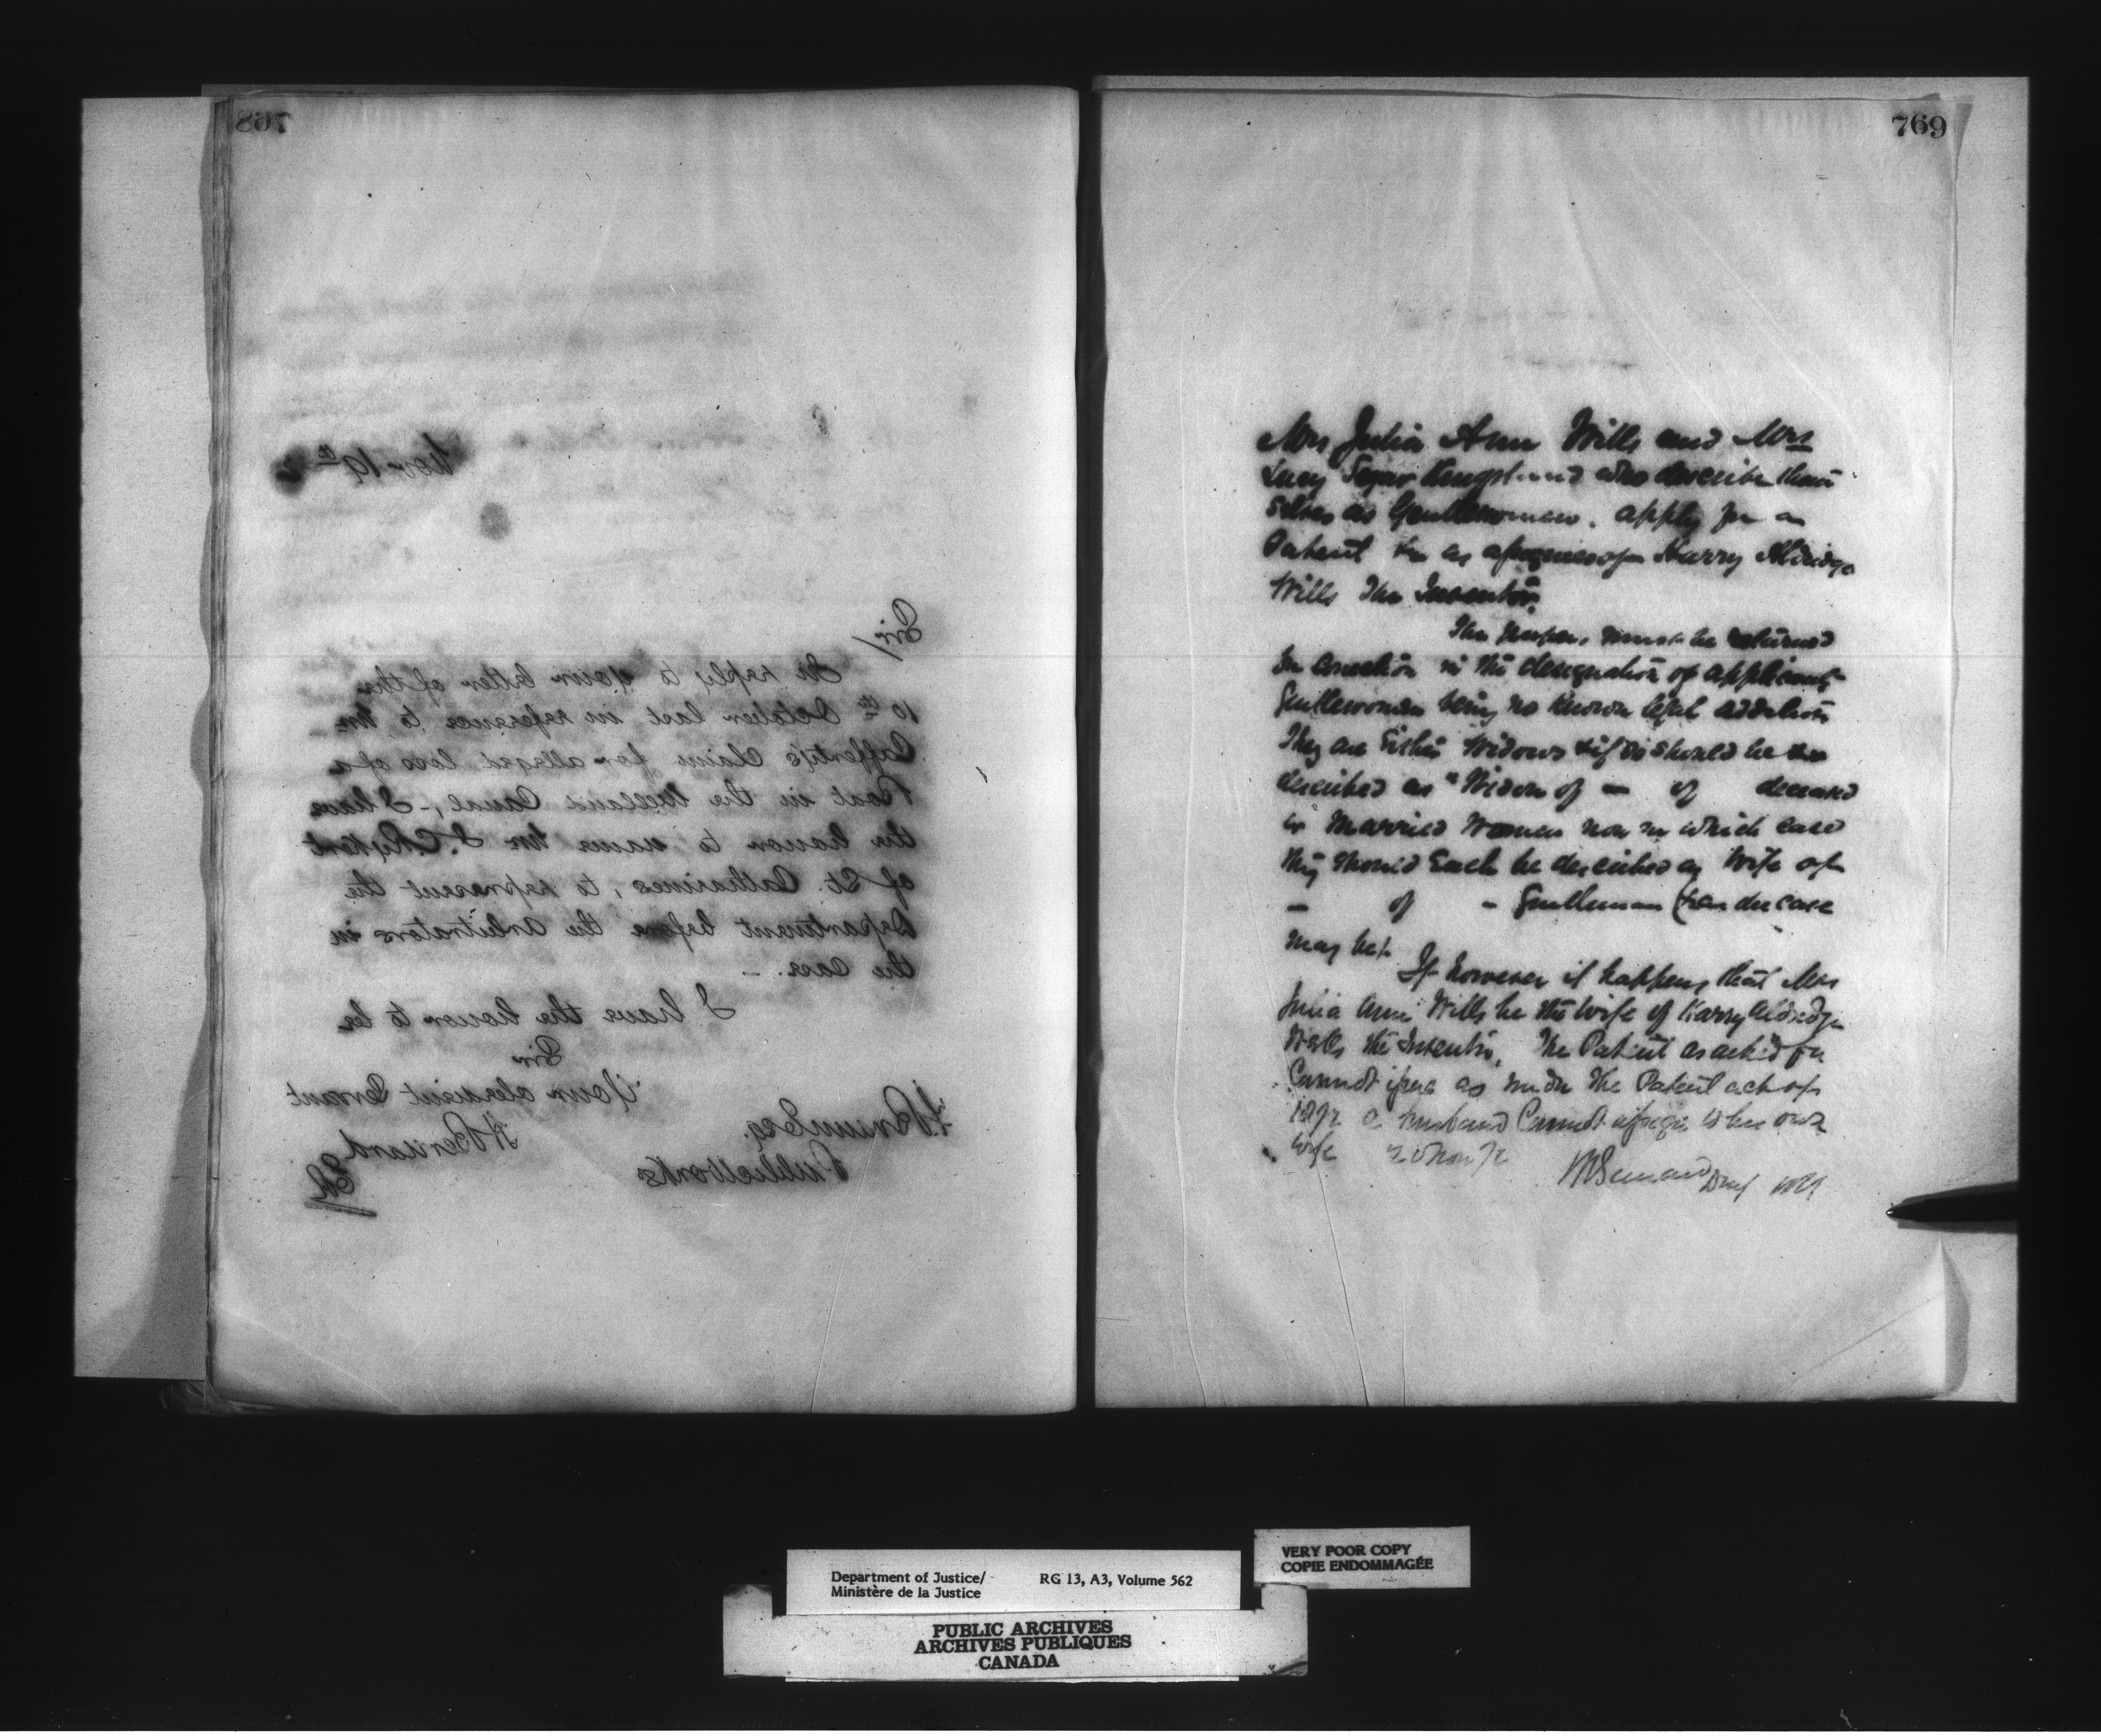 768
Nov 19th 2
Sir/
In reply to your letter of the
10th October last in reference to Mr
Cafferty's Claim for alleged loss of a
Boat in the Welland Canal,- I have
the honor to name Mr J. C. Rykert
of St. Catharines, to represent the
Department before the Arbitrators in
the case. -
I have the honor to be
Sir
Your obedient Servant
H Bernard
F. Braun Esq.
Public Works
769
Mrs Julia Ann Wills and Mrs
Lucy Kingsland who describe them
selves as Gentlewomen. apply for a
Patent as assignees of Harry Aldridge
Wills The Inventor.
The papers must be returned
for correction in the designation of applicants
Gentlewoman being no known legal addition
They are Either Widows & if so should be
described as "Widow of — of deceased
or Married Women now in which case
they should Each be described as Wife of
— of — Gentleman (as the case
may be).
If however it happens that Mrs
Julia Ann Wills be the wife of Harry Aldridge
Wills the Inventor, The Patent as asked for
Cannot issue as under the Patent act of
1872 a husband Cannot assign to his own
wife 20 Nov 72
H Bernard
Department of Justice/
Ministère de la Justice
RG 13, A3, Volume 562
VERY POOR COPY
COPIE ENDOMMAGÉE
PUBLIC ARCHIVES
ARCHIVES PUBLIQUES
CANADA